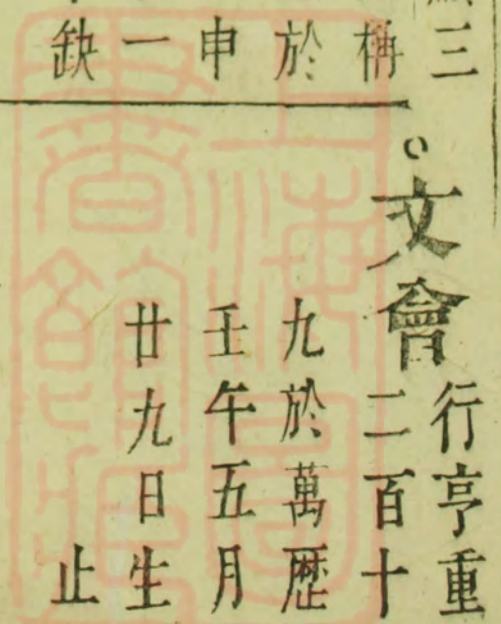 三
稱
於
申
一
缺
文會
行亨重
二百十
九於萬歷
壬午五月
廿九日生
止
上海圖書館